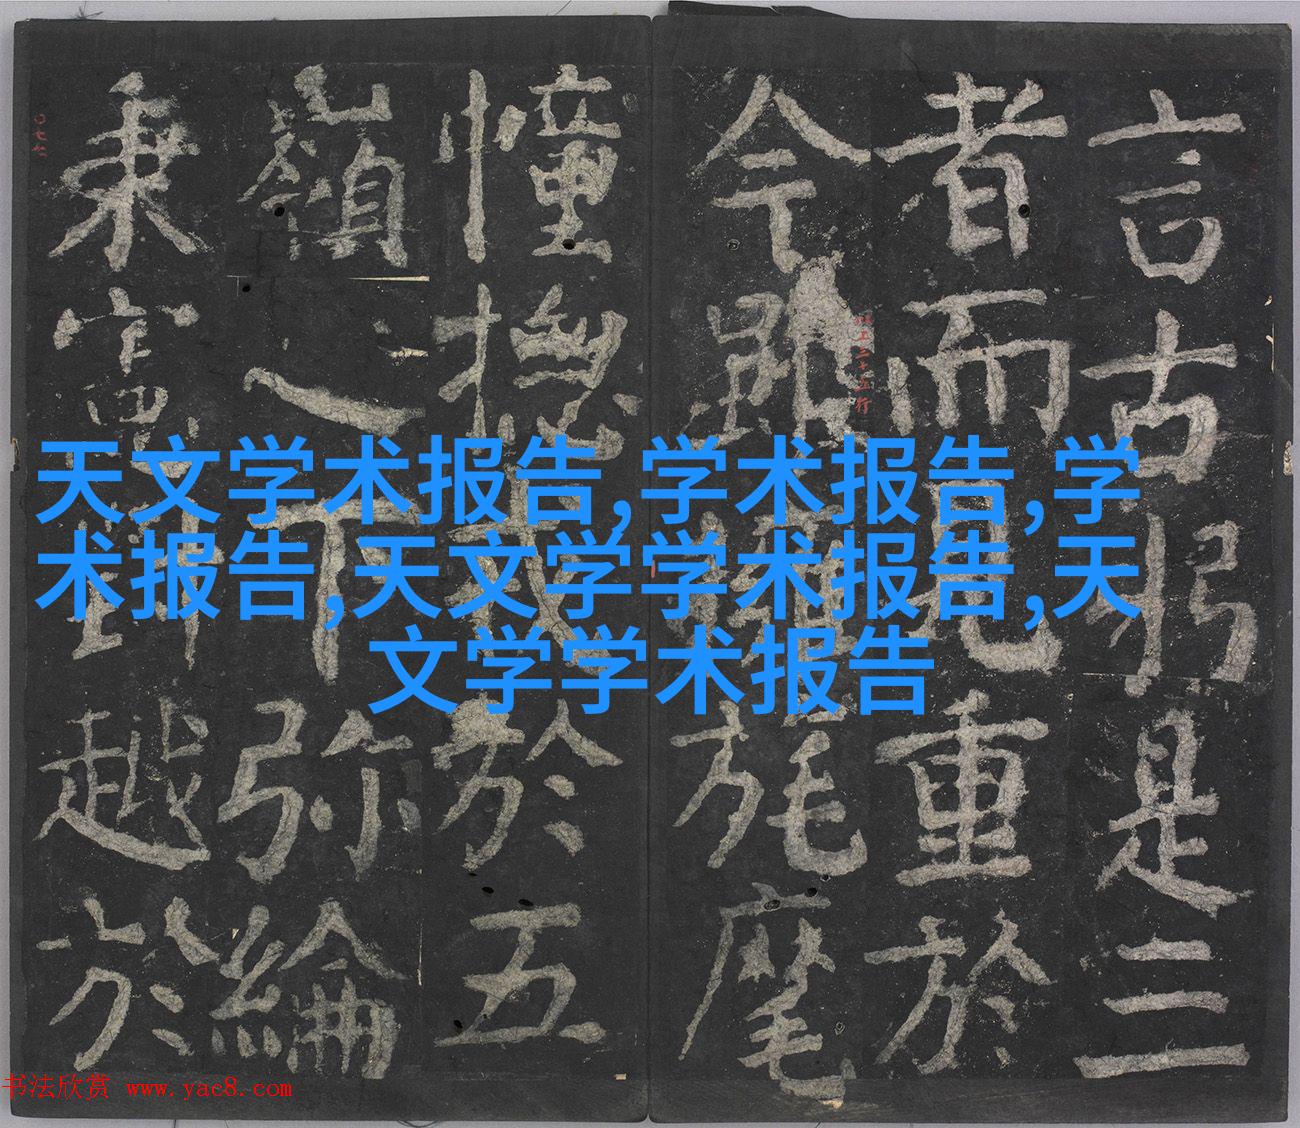 天文学术报告,学术报告,学
术报告,天文学学术报告,天
文学学术报告
言古是三
者而見重於
今旄麾
幢揔戎於五
嶺之下弥綸
秉憲對越於
书法欣赏 www.yac8.com